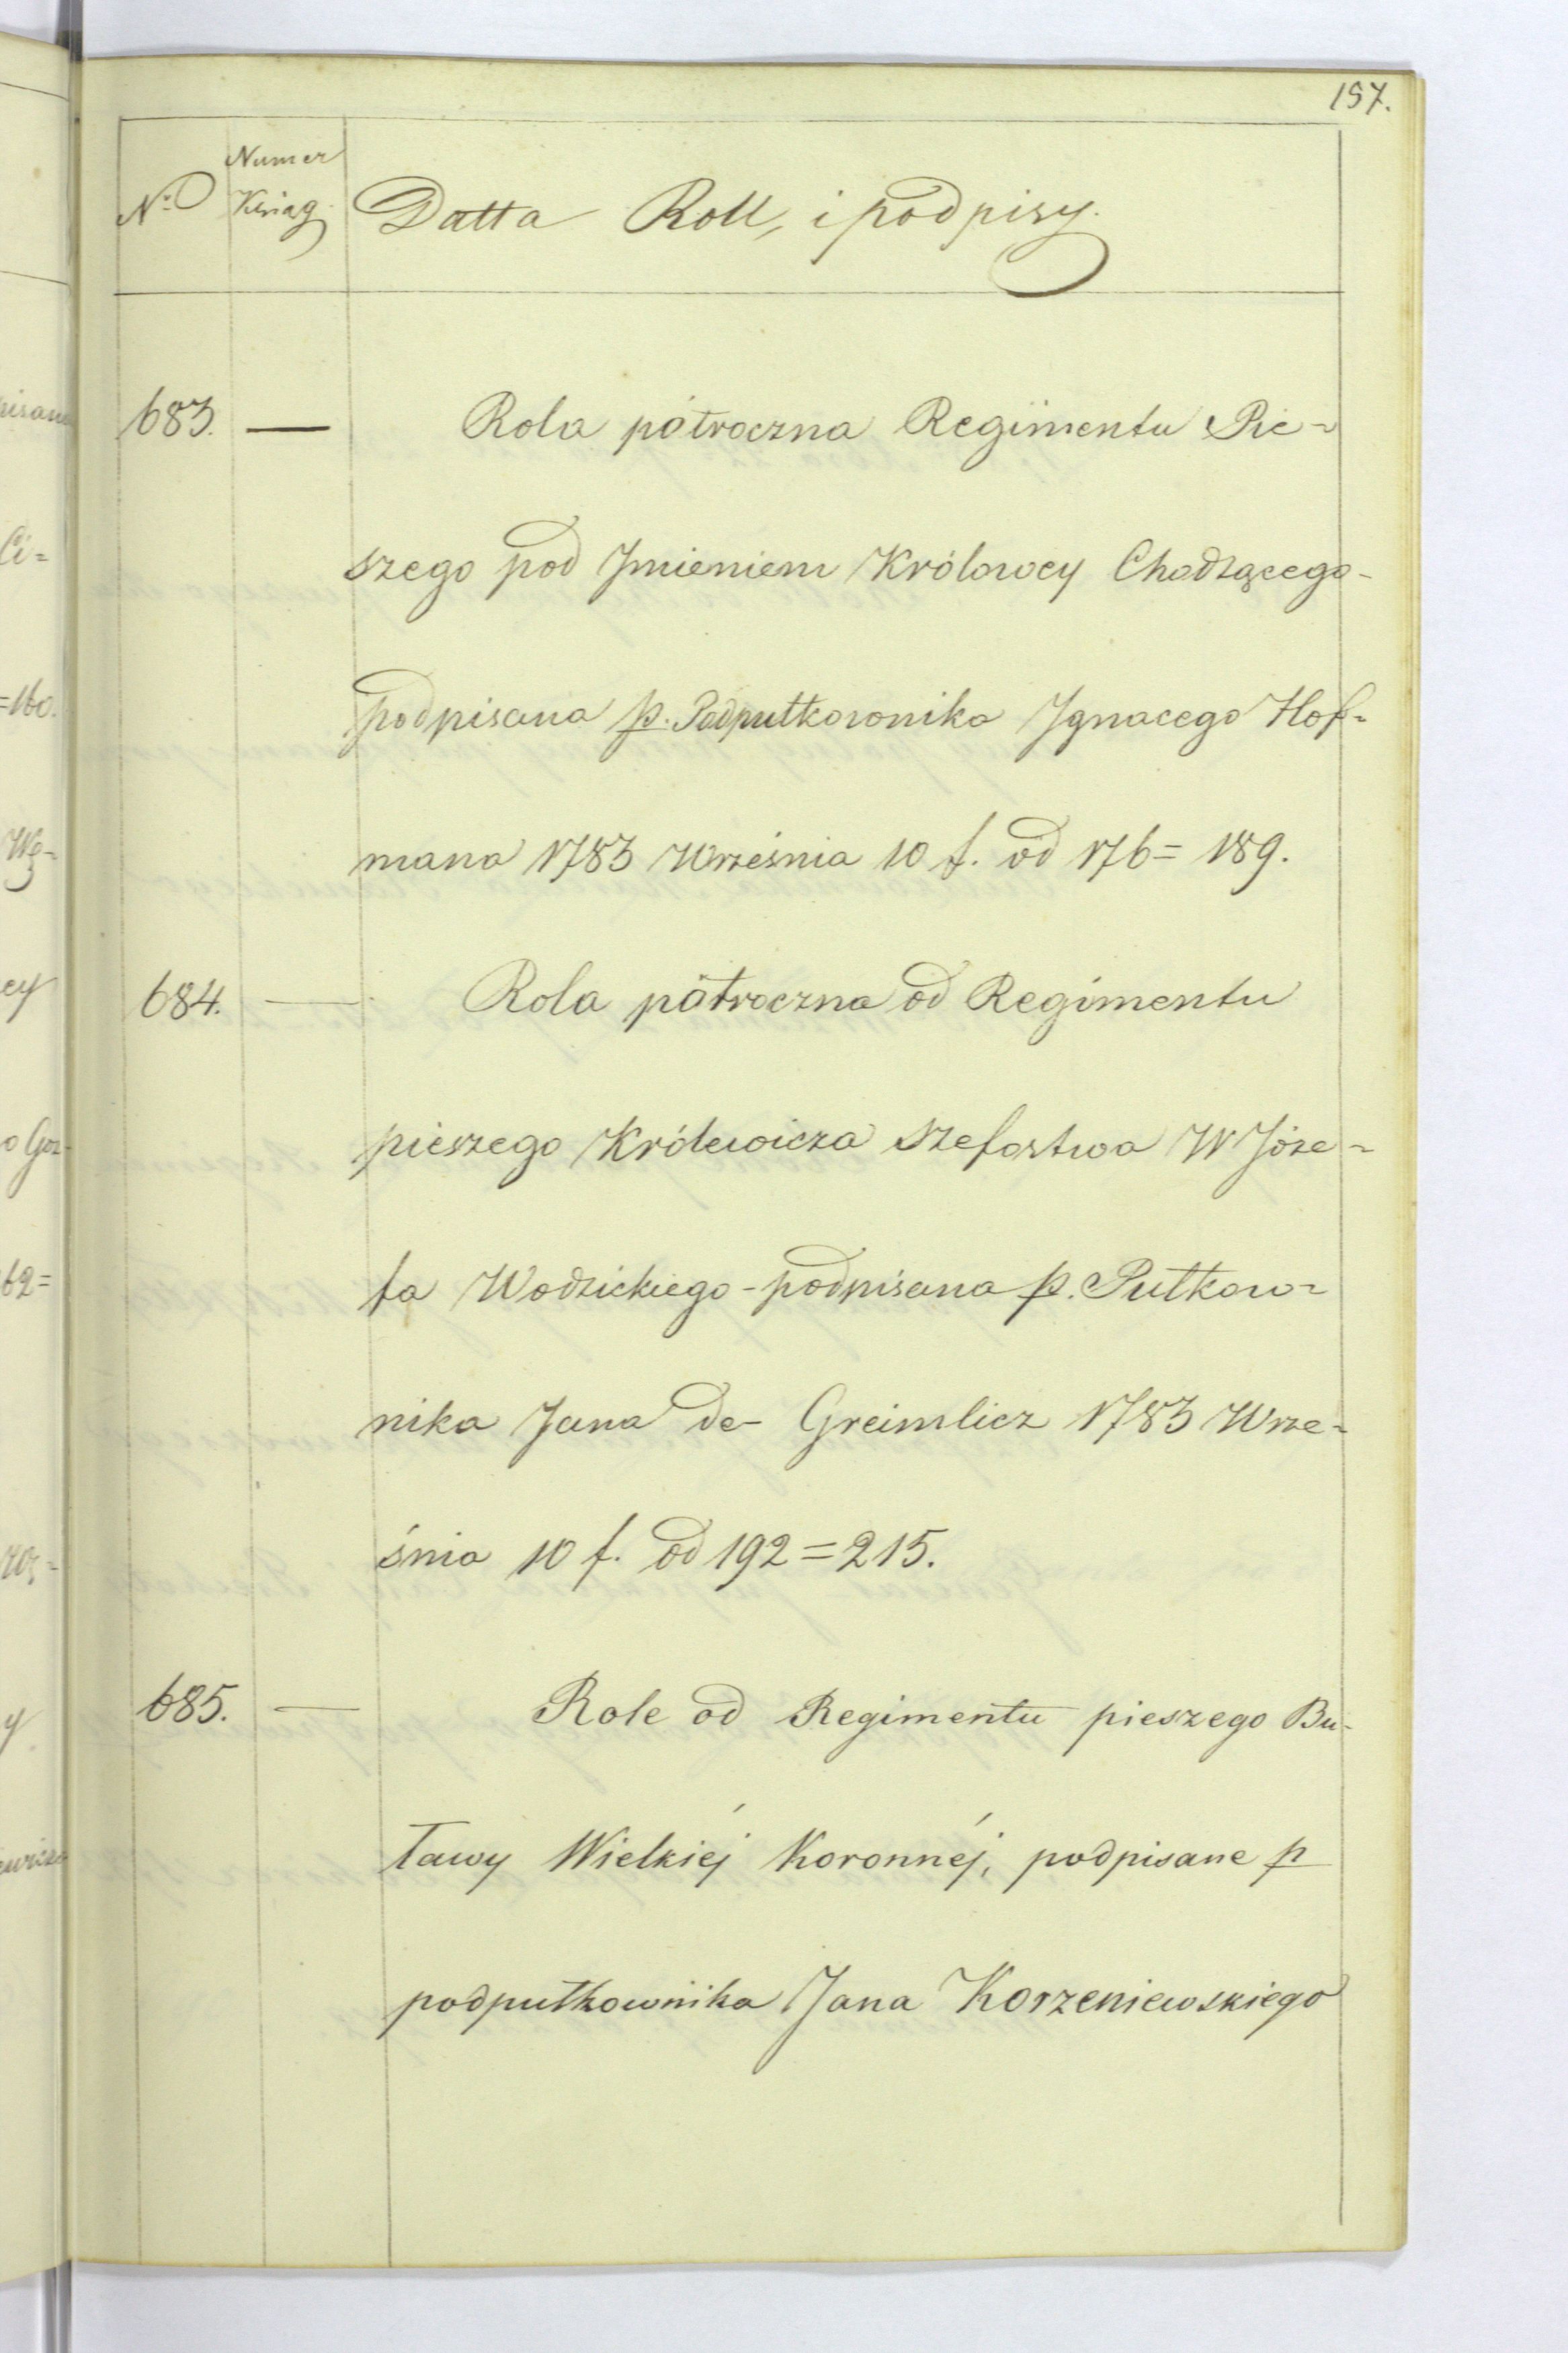 157.
Numer
No Ksiag. Datta Roll, i podpisy.
683. — Rola półroczna Regimentu Pie=
szego pod Jmieniem Królowey Chodzącego-
podpisana p. Podpułkownika Jgnacego Hof=
mana 1783 Września 10 f. od 176= 189.
684. — Rola półroczna od Regimentu
pieszego Królewicza Szefostwa W Józe=
fa Wodzickiego - podpisana p. Pułkow=
nika Jana de- Greimlicz 1783 Wrze=
śnia 10 f. od 192=215.
685. — Role od Regimentu pieszego Bu-
ławy Wielkiéj Koronnéj, podpisane p
podpułkownika Jana Korzeniewskiego